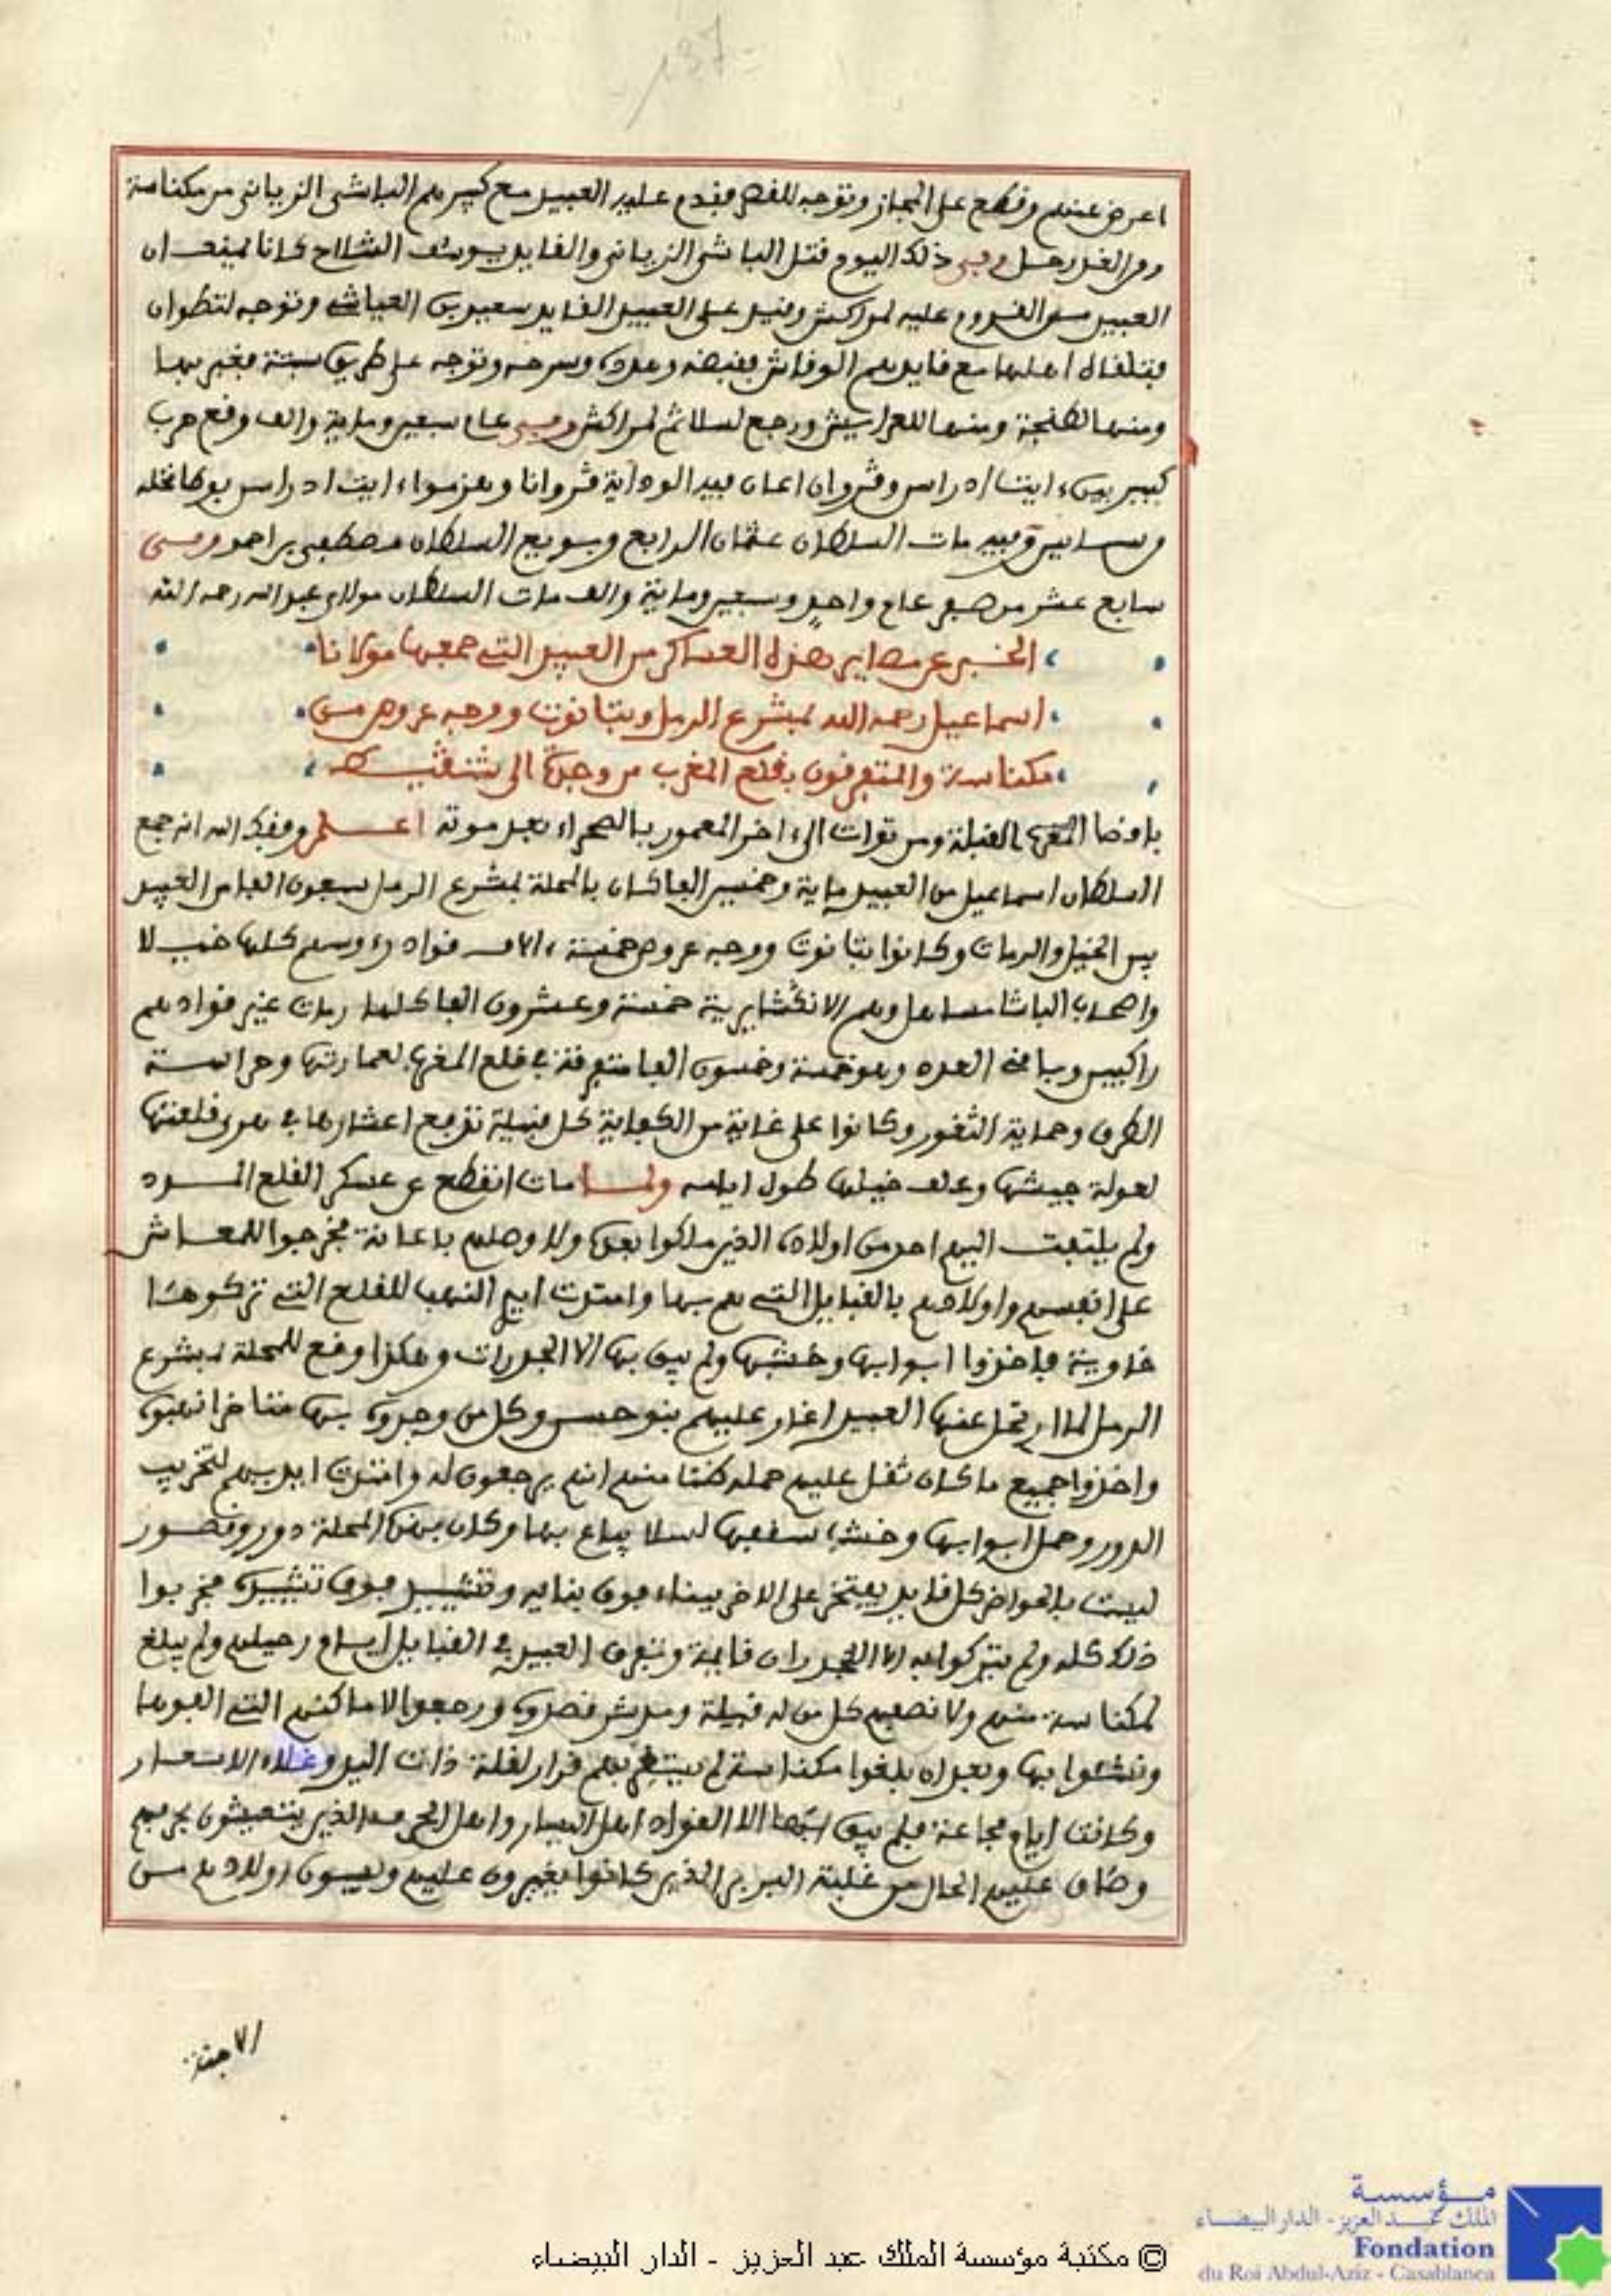 137
اعرض عنهم وقطع على المجاز وتوجه للقصر فقدم عليه العبيد مع كبيرهم الباشى الزياني من مكناسة
ومن الغد رحل وفي ذلك اليوم قتل الباشى الزياني والقايد يوسف السلاح كانا يمنعان
العبيد من القدوم عليه لمراكش وقيد على العبيد القايد سعيد بن العياشي وتوجه لتطوان
فتلقاه اهلها مع قايدهم الوقاش فقبضه وعده وسرحه وتوجه على طريق سبتة فعبر بها
ومنها لطنجة ومنها للعرايش ورجع لسلا ثم لمراكش وفي عام سبعين وماية والف وقع حرب
كبير بين ايت ادراسن وڭروان اعان فيه الوداية ڭروانا وهزموا ايت ادراسن
وفيه مات السلطان عثمان الرابع وبويع السلطان مصطفى بن احمد وفي
سابع عشر من صفر عام واحد وسبعين وماية والف مات السلطان مولاي عبد الله رحمه الله
الخبر عن مصاير هذه العساكر من العبيد التي جمعها مولانا
اسماعيل رحمه الله بمشرع الرمل وبتانوت ووجه عروص من
مكناسة والمتفرقون بقلع المغرب من وجدة الى شنقيط
باقصا المغرب القبلة ومن توات الى اخر المعمور بالصحراء بعد موته اعلم وفقك الله انه جمع
السلطان اسماعيل من العبيد ماية وخمسين الفا كان بالمحلة بمشرع الرمل سبعون الفا من العبيد
بين الخيل والرمات وكانوا بتانوت ووجه عروص خمسة الاف قواد رءوسهم كلها خيلا
واصحاب الباشا مساهل وهم الانڭشايرية خمسة وعشرون الفا كلها رمات غير قوادهم
راكبين وباقي العدد وهو خمسة وخمسون الفا متفرقة في قلع المغرب لعمارتها وحراسة
الطرق وحماية الثغور وكانوا على غاية من الكفاية كل قبيلة تدفع اعشارها في هري قلعتها
لعولة جيشها وعلف خيلها طول ايامه ولما مات انقطع عن عسكر القلع المدد
ولم يلتفت اليهم احد من اولاده الذين ملكوا بعده ولا وصلهم باعانة فخرجوا للمعاش
على انفسهم واولادهم بالقبايل التي هم بها وامتدت ايدي النهب للقلع التي تركوها
خاوية فاخذوا ابوابها وخشبها ولم يبق بها الا الجدرات وهكذا وقع للمحلة بمشرع
الرمل لما ارتحل عنها العبيد اغار عليهم بنو حسن وكل من وجدوه بها متاخرا نهبوه
واخذوا جميع ما كان ثقل عليهم حمله ظنا منهم انهم يرجعون له وامتدت ايديهم لتخريب
الدور وحمل ابوابها وخشب سقفها لسلا يباع بها وكان بهذه المحلة دور وقصور
ليست بالحواضر كل قايد يفتخر على الاخر ببناء فوق بنايه وتشييد فوق تشييده فخربوا
ذلك كله ولم يتركوا به الا الجدران قايمة وتفرق العبيد في القبايل ايام رحيلهم ولم يبلغ
لمكناسة منهم ولا نصفهم كل من له قبيلة ومدشر قصده ورجعوا لاماكنهم التي الفوها
ونشئوا بها وبعد ان بلغوا مكناسة لم يستقر بهم قرار لقلة ذات اليد وغلاء الاسعار
وكانت ايام مجاعة فلم يبق بها الا القواد اهل اليسار واهل الحرف الذين يتعيشون بحرفهم
وضاق عليهم الحال من غلبة البربر الذين كانوا يغيرون عليهم ويسبون اولادهم من
مؤسسة
الملك عبد العزيز - الدار البيضاء
Fondation
du Roi Abdul-Aziz - Casablanca
© مكتبة مؤسسة الملك عبد العزيز - الدار البيضاء